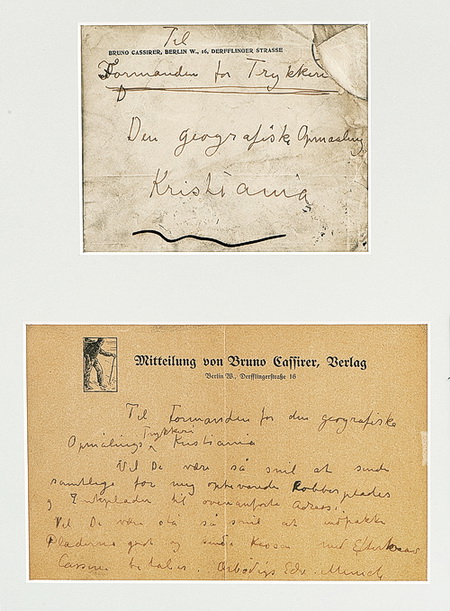 Til
BRUNO CASSIRER, BERLIN W., 16, DERFFLINGER STRASSE
Formanden for Trykkeri
Den geografiske Opmaaling
Kristiania
Mitteilung von Bruno Cassirer, Verlag
Berlin W., Derfflingerstraße 16
Til Formanden for den geografiske
Opmålings Trykkeri Kristiania
Vil De være så snil at sende
samtlige for mig opbevarede Kobberplader
og Zinkplader til ovenanførte Adresse.
Vil De være så snil at indpakke
Pladerne godt og sende Kassen med Efterkrav
Cassirer betaler. Ærbødigst Edv. Munch